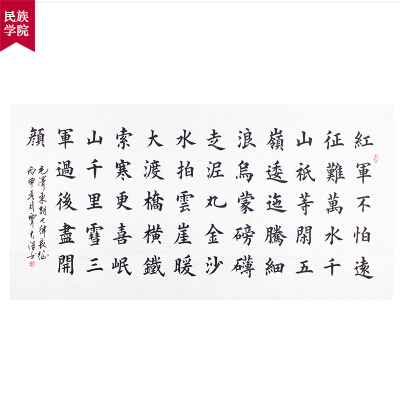 民族
学院
紅軍不怕遠
征難萬水千
山祇等閑五
嶺逶迤騰細
浪烏蒙磅礴
走泥丸金沙
水拍雲崖暖
大渡橋橫鐵
索寒更喜岷
山千里雪三
軍過後盡開
顏
毛澤東詩七律長征
丙申